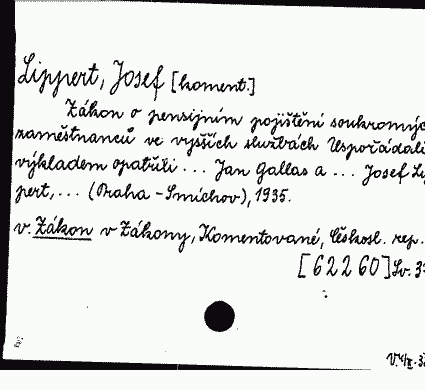 Lippert, Josef [koment.]
Zákon o pensijním pojištění soukromýc
zaměstnanců ve vyšších službách Uspořádali
výkladem opatřili ... Jan Gallas a ... Josef Li
pert, ... (Praha - Smíchov), 1935.
v. Zákon v Zákony, Komentované, Českosl. rep.
[62260] Sv. 3